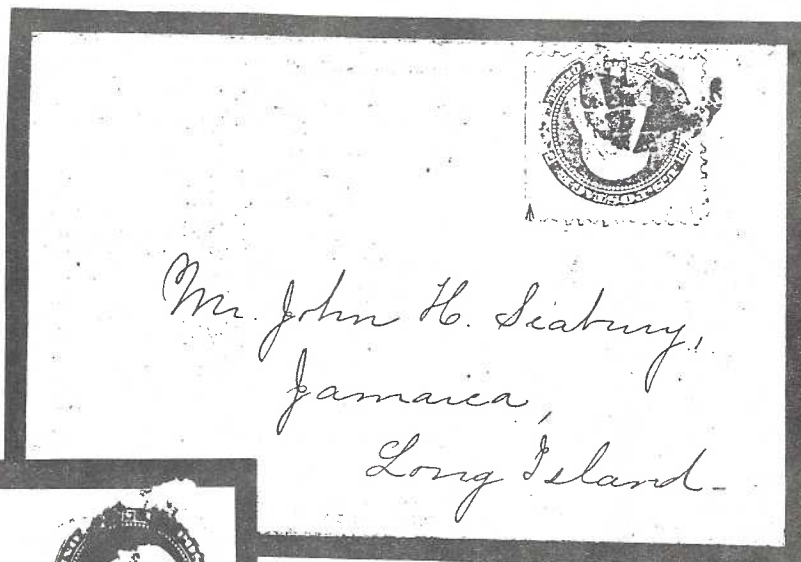 Mr. John H. Seabury,
Jamaica,
Long Island-